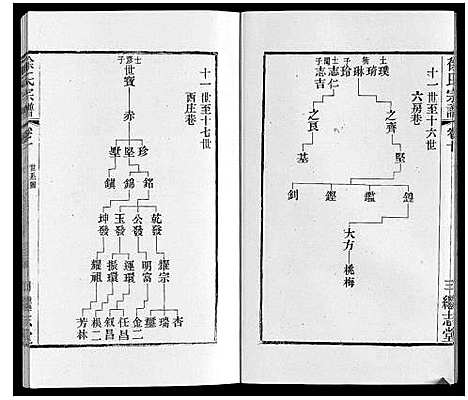 徐氏宗譜 卷十
十一世至十六世
六房巷
士璞
衡琦
琳
子玲
士志仁
子志吉
之齊
之良
堅
基
鐙
鑑
鏗
釗
大方
桃梅
三繼志堂
十一世至十七世
西庄巷
士彥子
世寶
赤
珍
堅
墅
銘
錫
鎮
乾發
公發
玉發
坤發
耀宗
明富
運環
振環
耀祖
杏
瑞
璽
金二
任昌
叙昌
模二
芳林
徐氏宗譜 卷十
世系圖